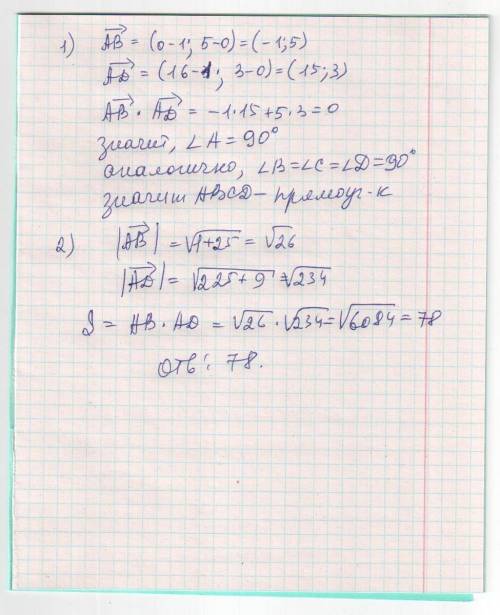 1) AB⃗ = (0-1; 5-0) = (-1; 5)
AD⃗ = (16-1; 3-0) = (15; 3)
AB⃗ · AD⃗ = -1·15+5·3=0
значит, ∠A = 90°
аналогично, ∠B=∠C=∠D=90°
значит ABCD - прямоуг-к
2) |AB⃗| = √1+25 = √26
|AD⃗| = √225+9 = √234
S = AB · AD = √26 · √234 = √6084 = 78
Отв: 78.